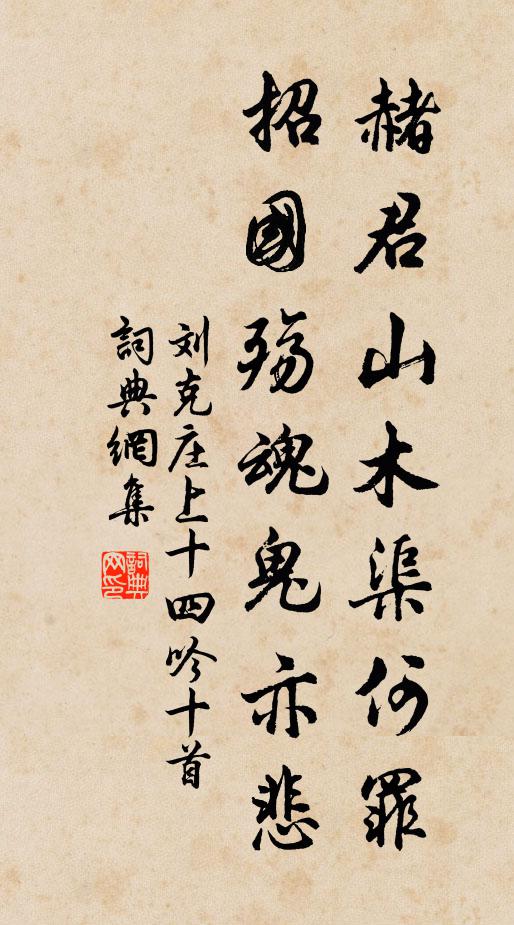 赭君山木渠何罪
招國殤魂鬼亦悲
刘克庄上十四吟十首
詞典網集
詞典网印